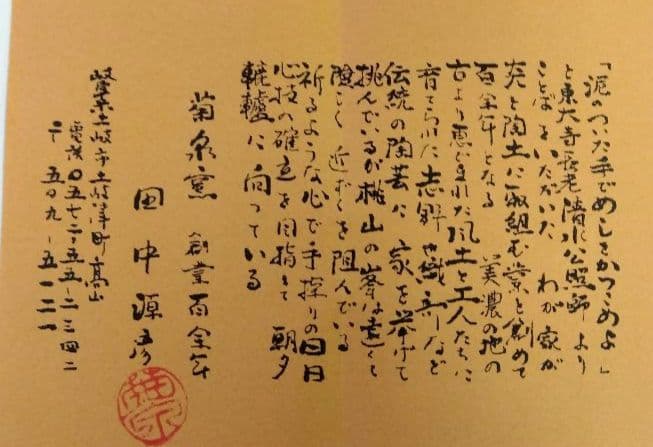 「泥のついた手でめしをかつこめよ」
と東大寺長老清水公照師より
ことばをいただいた わが家が
と陶土に取組む業を創めて
百余年となる 美濃の地の
古より恵まれた風土と工人たちに
育てられた志野や織部など
伝統の陶芸に家を挙げて
挑んでいるが桃山の峯は遠くて
険しく近ずくを阻んでいる
祈るような心で手探りの日日
心技の確立を目指して朝夕
轆轤に向っている
菊泉窯 創業百余年
田中源彦
岐阜県土岐市土岐津町高山
電話〇五七二・五五・二三四二
〒五〇九-五一二一